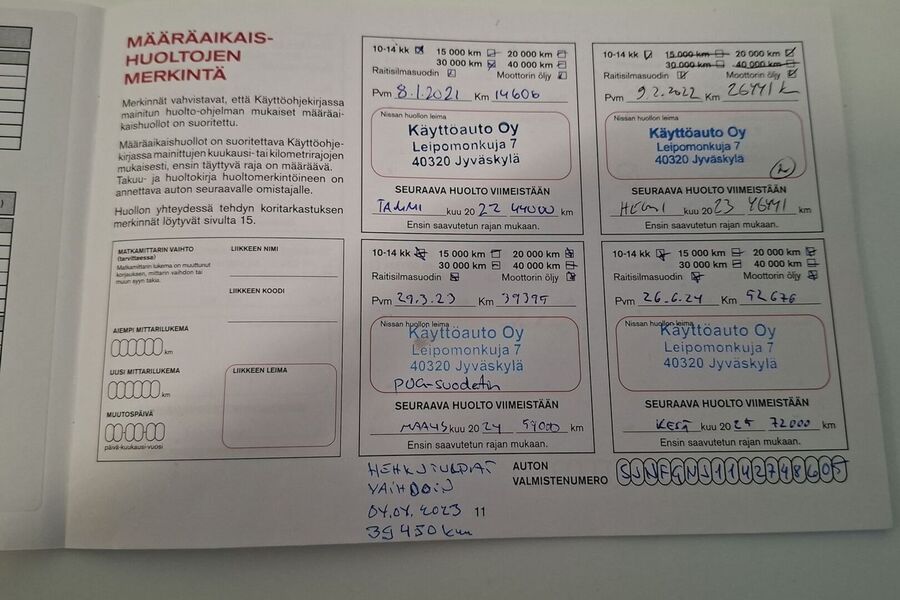 MÄÄRÄAIKAIS-
HUOLTOJEN
MERKINTÄ
Merkinnät vahvistavat, että Käyttöohjekirjassa
mainitun huolto-ohjelman mukaiset määräai-
kaishuollot on suoritettu.
Määräaikaishuollot on suoritettava Käyttöohje-
kirjassa mainittujen kuukausi- tai kilometrirajojen
mukaisesti, ensin täyttyvä raja on määräävä.
Takuu- ja huoltokirja huoltomerkintöineen on
annettava auton seuraavalle omistajalle.
Huollon yhteydessä tehdyn koritarkastuksen
merkinnät löytyvät sivulta 15.
MATKAMITTARIN VAIHTO
(tarvittaessa)
Matkamittarin lukema on muuttunut
korjauksen, mittarin vaihdon tai
muun syyn takia.
AIEMPI MITTARILUKEMA
km
UUSI MITTARILUKEMA
km
MUUTOSPÄIVÄ
päivä-kuukausi-vuosi
LIIKKEEN NIMI
LIIKKEEN KOODI
LIIKKEEN LEIMA
10-14 kk 15 000 km 20 000 km
30 000 km 40 000 km
Raitisilmasuodin Moottorin öljy
Pvm 8.1.2021 Km 14606
Nissan huollon leima
Käyttöauto Oy
Leipomonkuja 7
40320 Jyväskylä
SEURAAVA HUOLTO VIIMEISTÄÄN
TAMMI kuu 20 22 44000 km
Ensin saavutetun rajan mukaan.
10-14 kk 15 000 km 20 000 km
30 000 km 40 000 km
Raitisilmasuodin Moottorin öljy
Pvm 9.2.2022 Km 26441
Nissan huollon leima
Käyttöauto Oy
Leipomonkuja 7
40320 Jyväskylä
SEURAAVA HUOLTO VIIMEISTÄÄN
HELMI kuu 20 23 46441 km
Ensin saavutetun rajan mukaan.
10-14 kk 15 000 km 20 000 km
30 000 km 40 000 km
Raitisilmasuodin Moottorin öljy
Pvm 29.3.23 Km 39395
Nissan huollon leima
Käyttöauto Oy
Leipomonkuja 7
40320 Jyväskylä
SEURAAVA HUOLTO VIIMEISTÄÄN
MAALIS kuu 20 24 59000 km
Ensin saavutetun rajan mukaan.
10-14 kk 15 000 km 20 000 km
30 000 km 40 000 km
Raitisilmasuodin Moottorin öljy
Pvm 26.6.24 Km 52676
Nissan huollon leima
Käyttöauto Oy
Leipomonkuja 7
40320 Jyväskylä
SEURAAVA HUOLTO VIIMEISTÄÄN
KESÄ kuu 20 25 72000 km
Ensin saavutetun rajan mukaan.
HEHKUTULPAT
VAIHDOIN
04.04.2023
39450 km
11
AUTON
VALMISTENUMERO